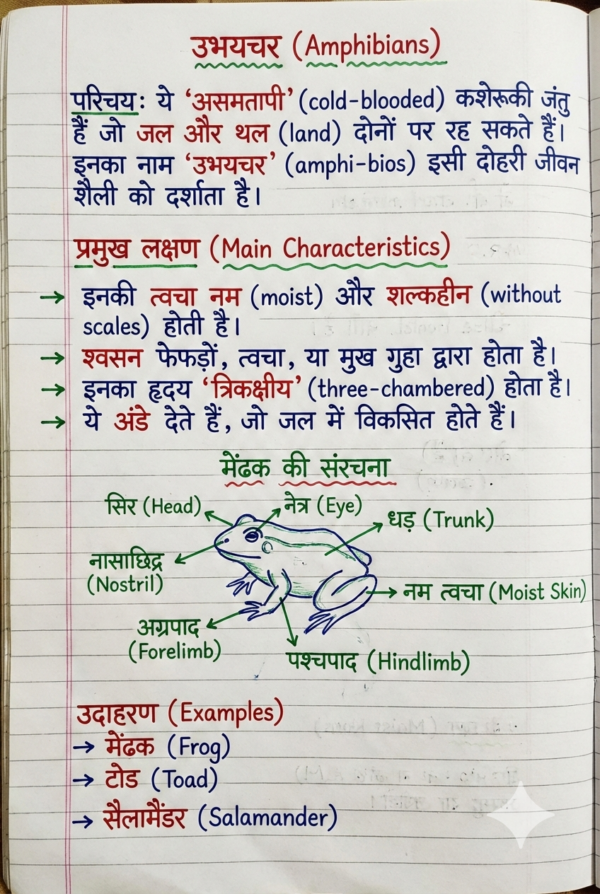 उभयचर (Amphibians)
परिचय: ये ‘असमतापी’ (cold-blooded) कशेरूकी जंतु
हैं जो जल और थल (land) दोनों पर रह सकते हैं।
इनका नाम ‘उभयचर’ (amphi-bios) इसी दोहरी जीवन
शैली को दर्शाता है।
प्रमुख लक्षण (Main Characteristics)
→ इनकी त्वचा नम (moist) और शल्कहीन (without
scales) होती है।
→ श्वसन फेफड़ों, त्वचा, या मुख गुहा द्वारा होता है।
→ इनका हृदय ‘त्रिकक्षीय’ (three-chambered) होता है।
→ ये अंडे देते हैं, जो जल में विकसित होते हैं।
मेंढक की संरचना
सिर (Head)
नेत्र (Eye)
धड़ (Trunk)
नासाछिद्र
(Nostril)
नम त्वचा (Moist Skin)
अग्रपाद
(Forelimb)
पश्चपाद (Hindlimb)
उदाहरण (Examples)
→ मेंढक (Frog)
→ टोड (Toad)
→ सैलामैंडर (Salamander)